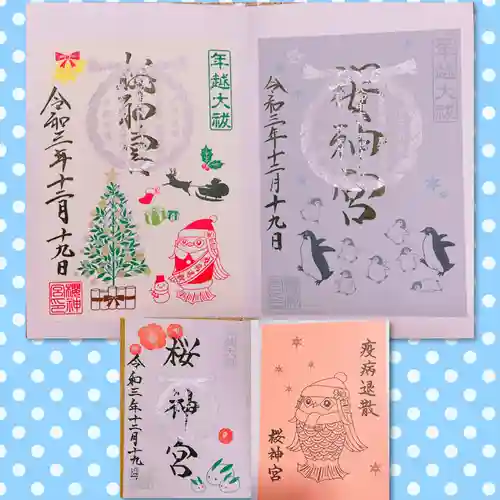 年越大祓
桜神宮
令和三年十二月十九日
桜神宮印
年越大祓
桜神宮
令和三年十二月十九日
桜神宮
令和三年十二月十九日
疫病退散
桜神宮